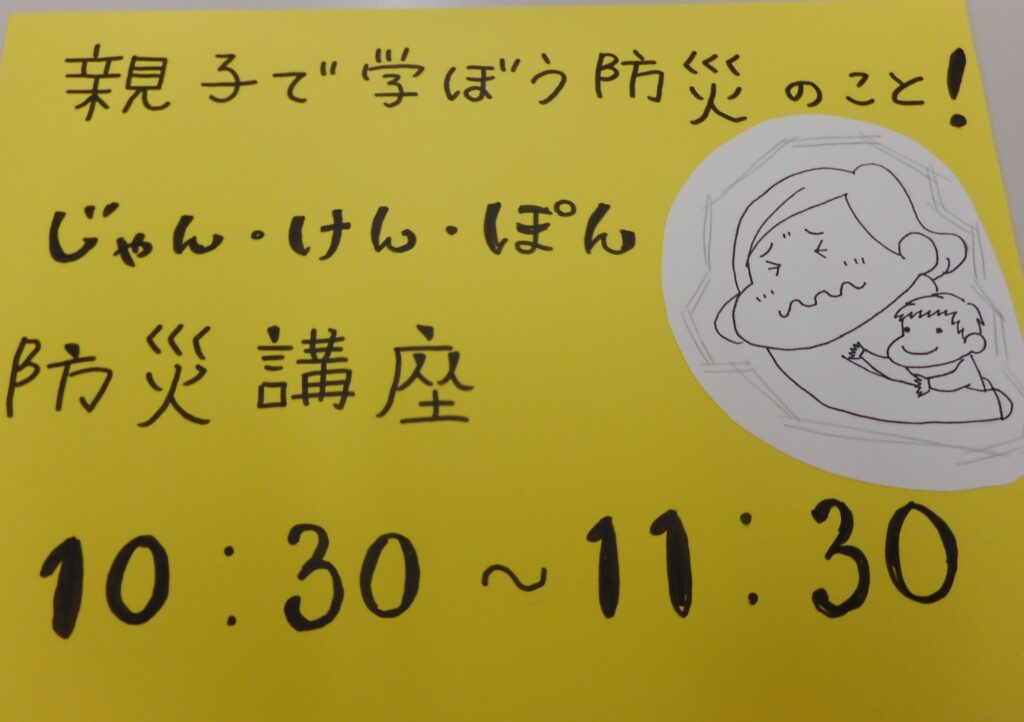 親子で学ぼう防災のこと!
じゃん・けん・ぽん
防災講座
10:30~11:30